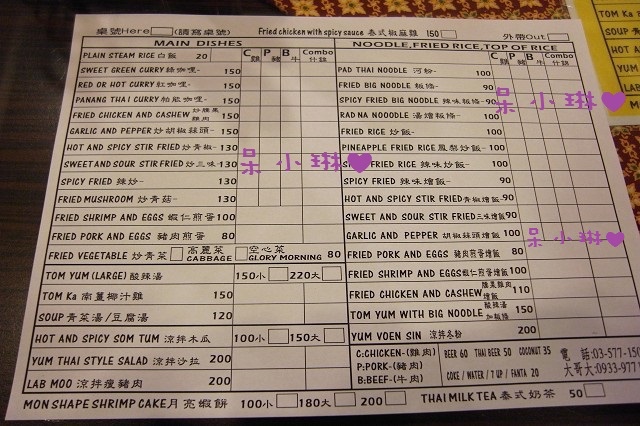 桌號Here (請寫桌號) Fried chicken with spicy sauce 泰式椒麻雞 150 外帶Out
MAIN DISHES C雞 P豬 B牛 Combo什錦
PLAIN STEAM RICE 白飯 20
SWEET GREEN CURRY 綠咖哩- 150
RED OR HOT CURRY 紅咖哩- 150
PANANG THAI CURRY 柏能咖哩- 150
FRIED CHICKEN AND CASHEW 炒腰果雞肉 150
GARLIC AND PEPPER 炒胡椒蒜頭- 150
HOT AND SPICY STIR FRIED 炒青椒- 130
SWEET AND SOUR STIR FRIED 炒三味- 130
SPICY FRIED 辣炒- 130
FRIED MUSHROOM 炒青菇- 130
FRIED SHRIMP AND EGGS 蝦仁煎蛋 100
FRIED PORK AND EGGS 豬肉煎蛋 80
FRIED VEGETABLE 炒青菜 高麗菜 CABBAGE 空心菜 GLORY MORNING 80
TOM YUM (LARGE) 酸辣湯 150小 220大
TOM Ka 南薑椰汁雞 150
SOUP 青菜湯/豆腐湯 120
HOT AND SPICY SOM TUM 涼拌木瓜 100小 150大
YUM THAI STYLE SALAD 涼拌沙拉 200
LAB MOO 涼拌瘦豬肉 200
MON SHAPE SHRIMP CAKE 月亮蝦餅 100小 180大 200 THAI MILK TEA 泰式奶茶 50
NOODLE, FRIED RICE, TOP OF RICE C雞 P豬 B牛 Combo什錦
PAD THAI NOODLE 河粉- 100
FRIED BIG NOODLE 粄條- 90
SPICY FRIED BIG NOODLE 辣味粄條- 90
RAD NA NOOODLE 湯燴粄條- 100
FRIED RICE 炒飯- 100
PINEAPPLE FRIED RICE 鳳梨炒飯- 100
FRIED RICE 辣味炒飯- 100
SPICY FRIED 辣味燴飯- 90
HOT AND SPICY STIR FRIED 青椒燴飯- 90
SWEET AND SOUR STIR FRIED 三味燴飯- 90
GARLIC AND PEPPER 胡椒蒜頭燴飯- 90
FRIED PORK AND EGGS 豬肉煎蛋燴飯- 80
FRIED SHRIMP AND EGGS 蝦仁煎蛋燴飯 100
FRIED CHICKEN AND CASHEW 腰果雞肉燴飯 110
TOM YUM WITH BIG NOODLE 酸辣湯加粄條 150
YUM VOEN SIN 涼拌冬粉 200
C:CHICKEN-(雞肉)
P:PORK-(豬肉)
B:BEEF-(牛肉)
BEER 60 THAI BEER 50 COCONUT 35
COKE / WATER / 7 UP / FANTA 20
電話:03-577-150
大哥大:0933-977
呆小琳♥
呆小琳♥
呆小琳♥
TOM KA
SOUP 青
HOT AN
YUM T